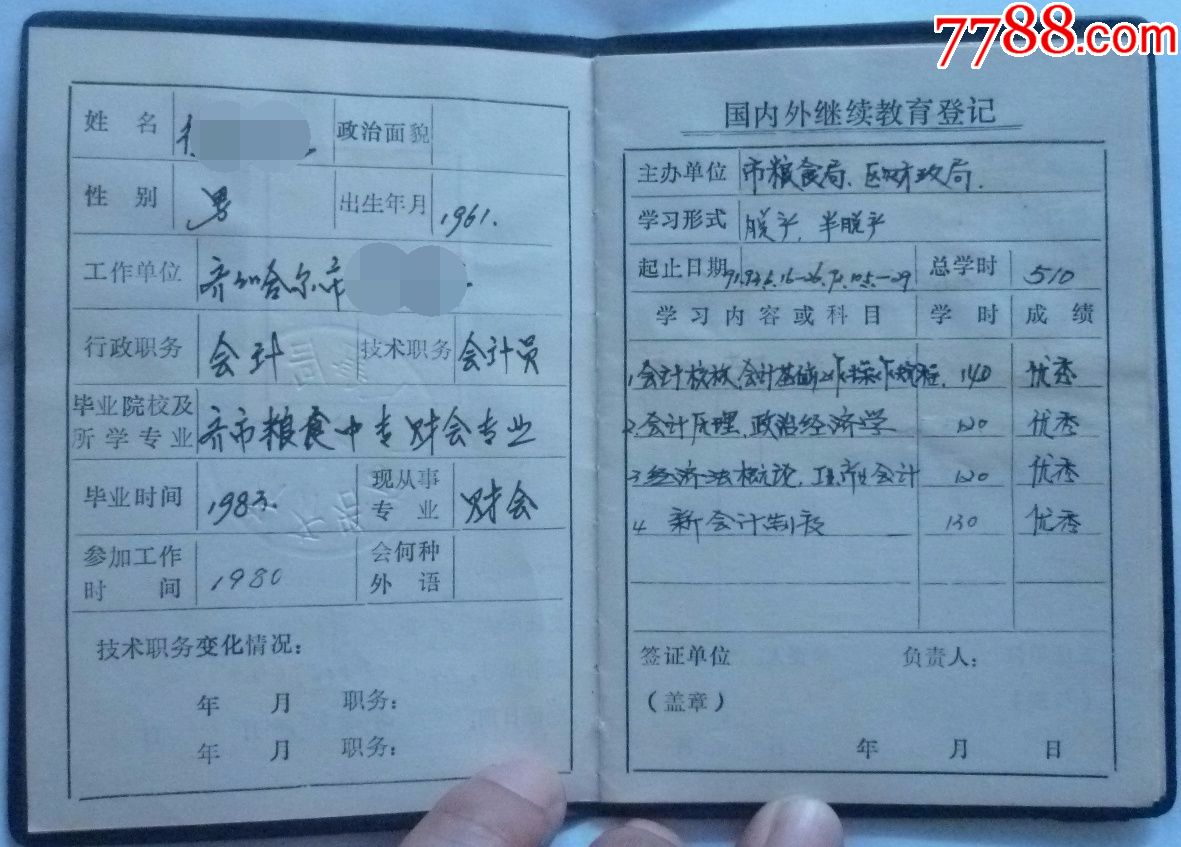 7788.com
姓 名 政治面貌
性 别 男 出生年月 1961.
工作单位 齐哈尔市
行政职务 会计 技术职务 会计员
毕业院校及
所学专业 齐市粮食中专财会专业
毕业时间 1983. 现从事
专 业 财会
参加工作
时 间 1980 会何种
外 语
技术职务变化情况:
年 月 职务:
年 月 职务:
国内外继续教育登记
主办单位 市粮食局、区财政局.
学习形式 脱产, 半脱产
起止日期 总学时 510
学习内容或科目 学时 成绩
1, 会计核核, 会计基础工作操作规程. 140 优秀
2. 会计原理, 政治经济学 120 优秀
3 经济法概论, 会计 120 优秀
4 新会计制度 130 优秀
签证单位 负责人:
(盖章)
年 月 日